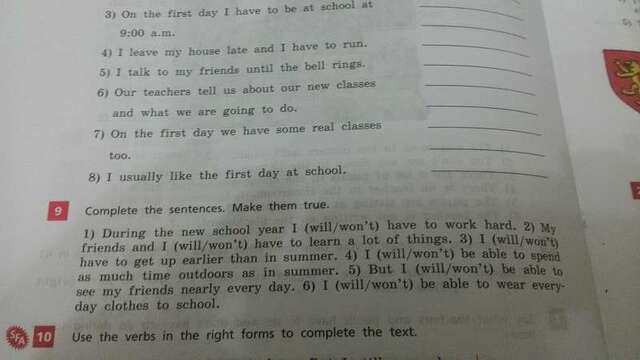 3) On the first day I have to be at school at
9:00 a.m.
4) I leave my house late and I have to run.
5) I talk to my friends until the bell rings.
6) Our teachers tell us about our new classes
and what we are going to do.
7) On the first day we have some real classes
too.
8) I usually like the first day at school.
9 Complete the sentences. Make them true.
1) During the new school year I (will/won't) have to work hard. 2) My
friends and I (will/won't) have to learn a lot of things. 3) I (will/won't)
have to get up earlier than in summer. 4) I (will/won't) be able to spend
as much time outdoors as in summer. 5) But I (will/won't) be able to
see my friends nearly every day. 6) I (will/won't) be able to wear every-
day clothes to school.
10 Use the verbs in the right forms to complete the text.